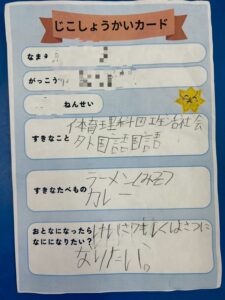 じこしょうかいカード
なまえ
がっこう
ねんせい
すきなこと
体育理科図工生活社会
外国語国語
すきなたべもの
ラーメン(みそ)
カレー
おとなになったら
なにになりたい？
けいさつもしくはさつに
なりたい。